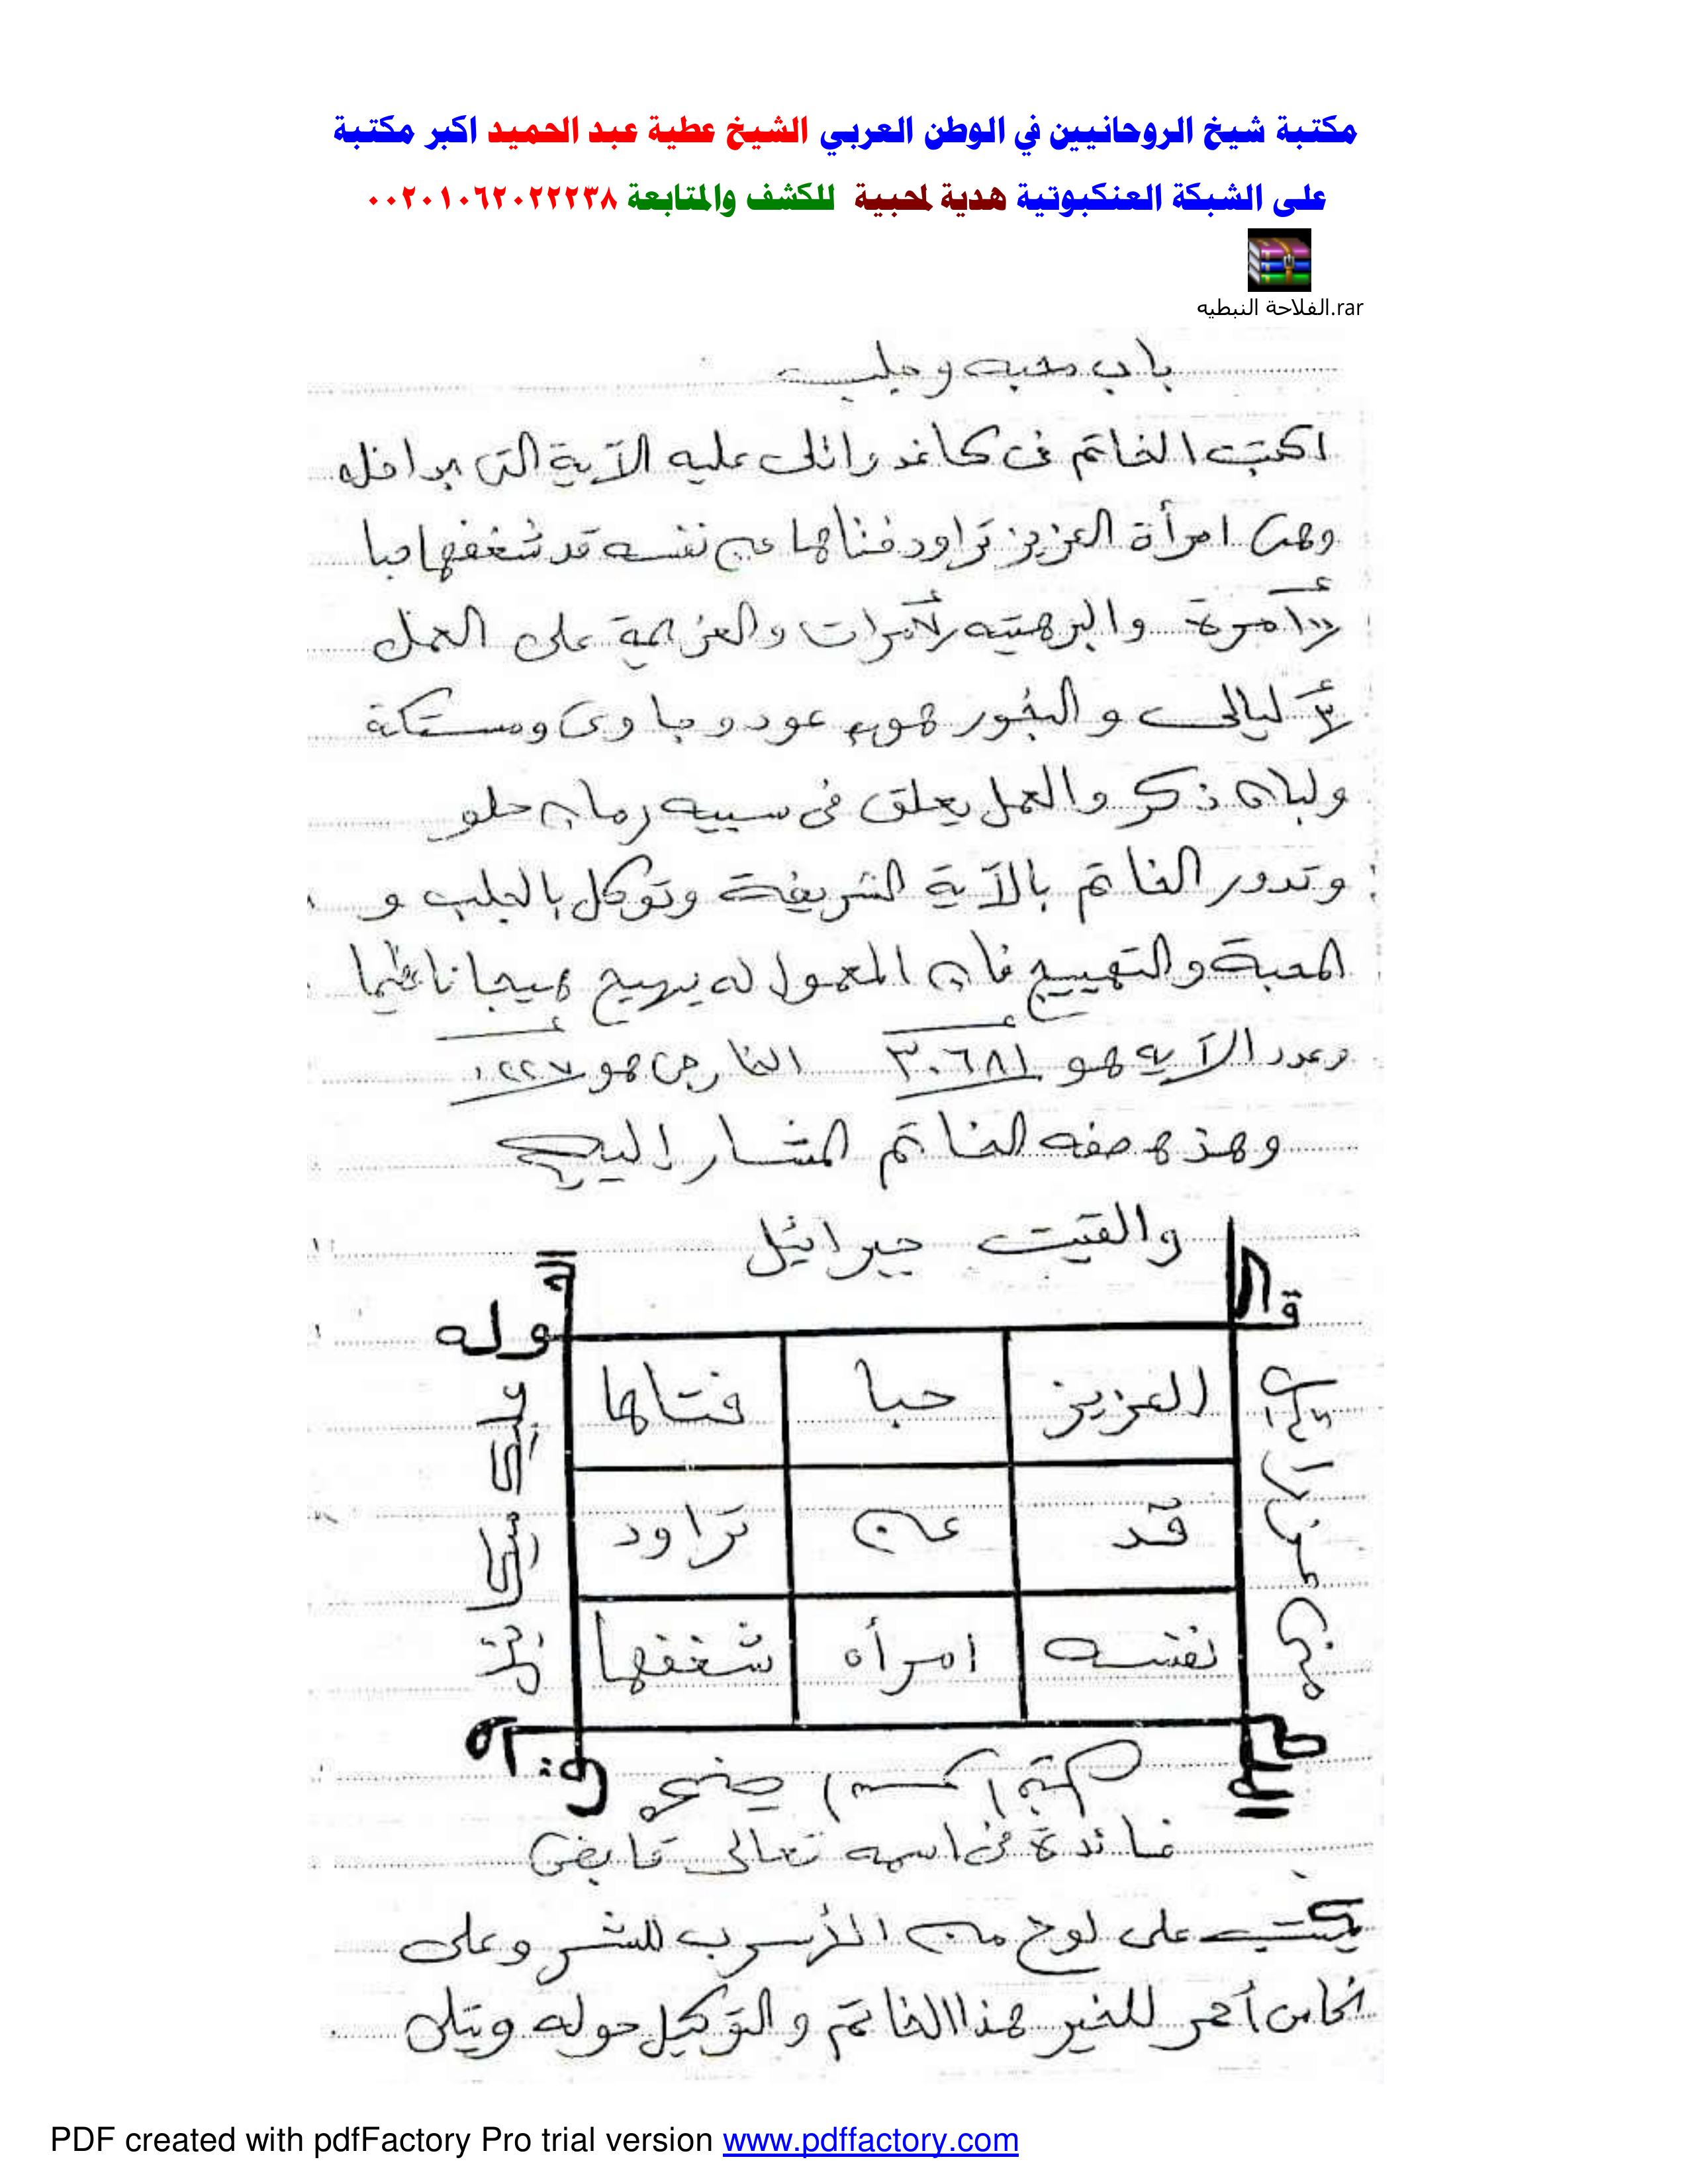 مكتبة شيخ الروحانيين في الوطن العربي الشيخ عطية عبد الحميد اكبر مكتبة
على الشبكة العنكبوتية هدية لمحبية للكشف والمتابعة ٠٠٢٠١٠٦٢٠٢٢٢٣٨
الفلاحة النبطيه.rar
باب محبه وجلب
اكتب الخاتم فى كاغد واتلى عليه الآية التى بداخله
وهى امرأة العزيز تراود فتاها عن نفسه قد شغفها حبا
مرة والبرهتيه مرات والعزيمة على العمل
ليالى و البخور هو عود و جاوى ومستكة
ولبان ذكر والعمل يعلق فى سيبه رمان حلو
وتدور الخاتم بالآية الشريفة وتوكل بالجلب و
المحبة و التهييج فان المعمول له يهيج هيجانا عظيما
وعدد الآيه هو ٣٠٦٨١ الخارجى هو ١٠٢٢٧
وهذه صفه الخاتم المشار إليه
والقيت جبرائيل
قوله
العزيز حبا فتاها
قد عن تراود
نفسه امرأه شغفها
فائدة فى اسمه تعالى قابض
يكتب على لوح من الأسرب للشر وعلى
نحاس أحمر للخير هذا الخاتم و التوكيل حوله ويتلى
PDF created with pdfFactory Pro trial version www.pdffactory.com